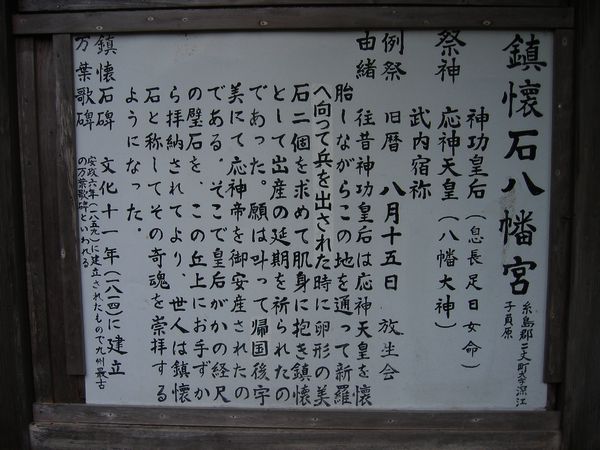 鎮懐石八幡宮
糸島郡二丈町字深江
子負原
祭神 神功皇后(息長足日女命)
応神天皇(八幡大神)
武内宿祢
例祭 旧暦 八月十五日 放生会
由緒 往昔神功皇后は応神天皇を懐
胎しながらこの地を通って新羅
へ向って兵を出された時に卵形の美
石二個を求めて肌身に抱き鎮懐
として出産の延期を祈られたの
であった。願は叶って帰国後宇
美にて応神帝を御安産されたの
である。そこで皇后がかの径尺
の璧石を、この丘上にお手ずか
ら拝納されてより、世人は鎮懐
石と称してその奇魂を崇拝する
ようになった。
鎮懐石碑 文化十一年(一八一四)に建立
万葉歌碑 安政六年(一八五九)に建立されたもので九州最古
の万葉歌碑といわれる